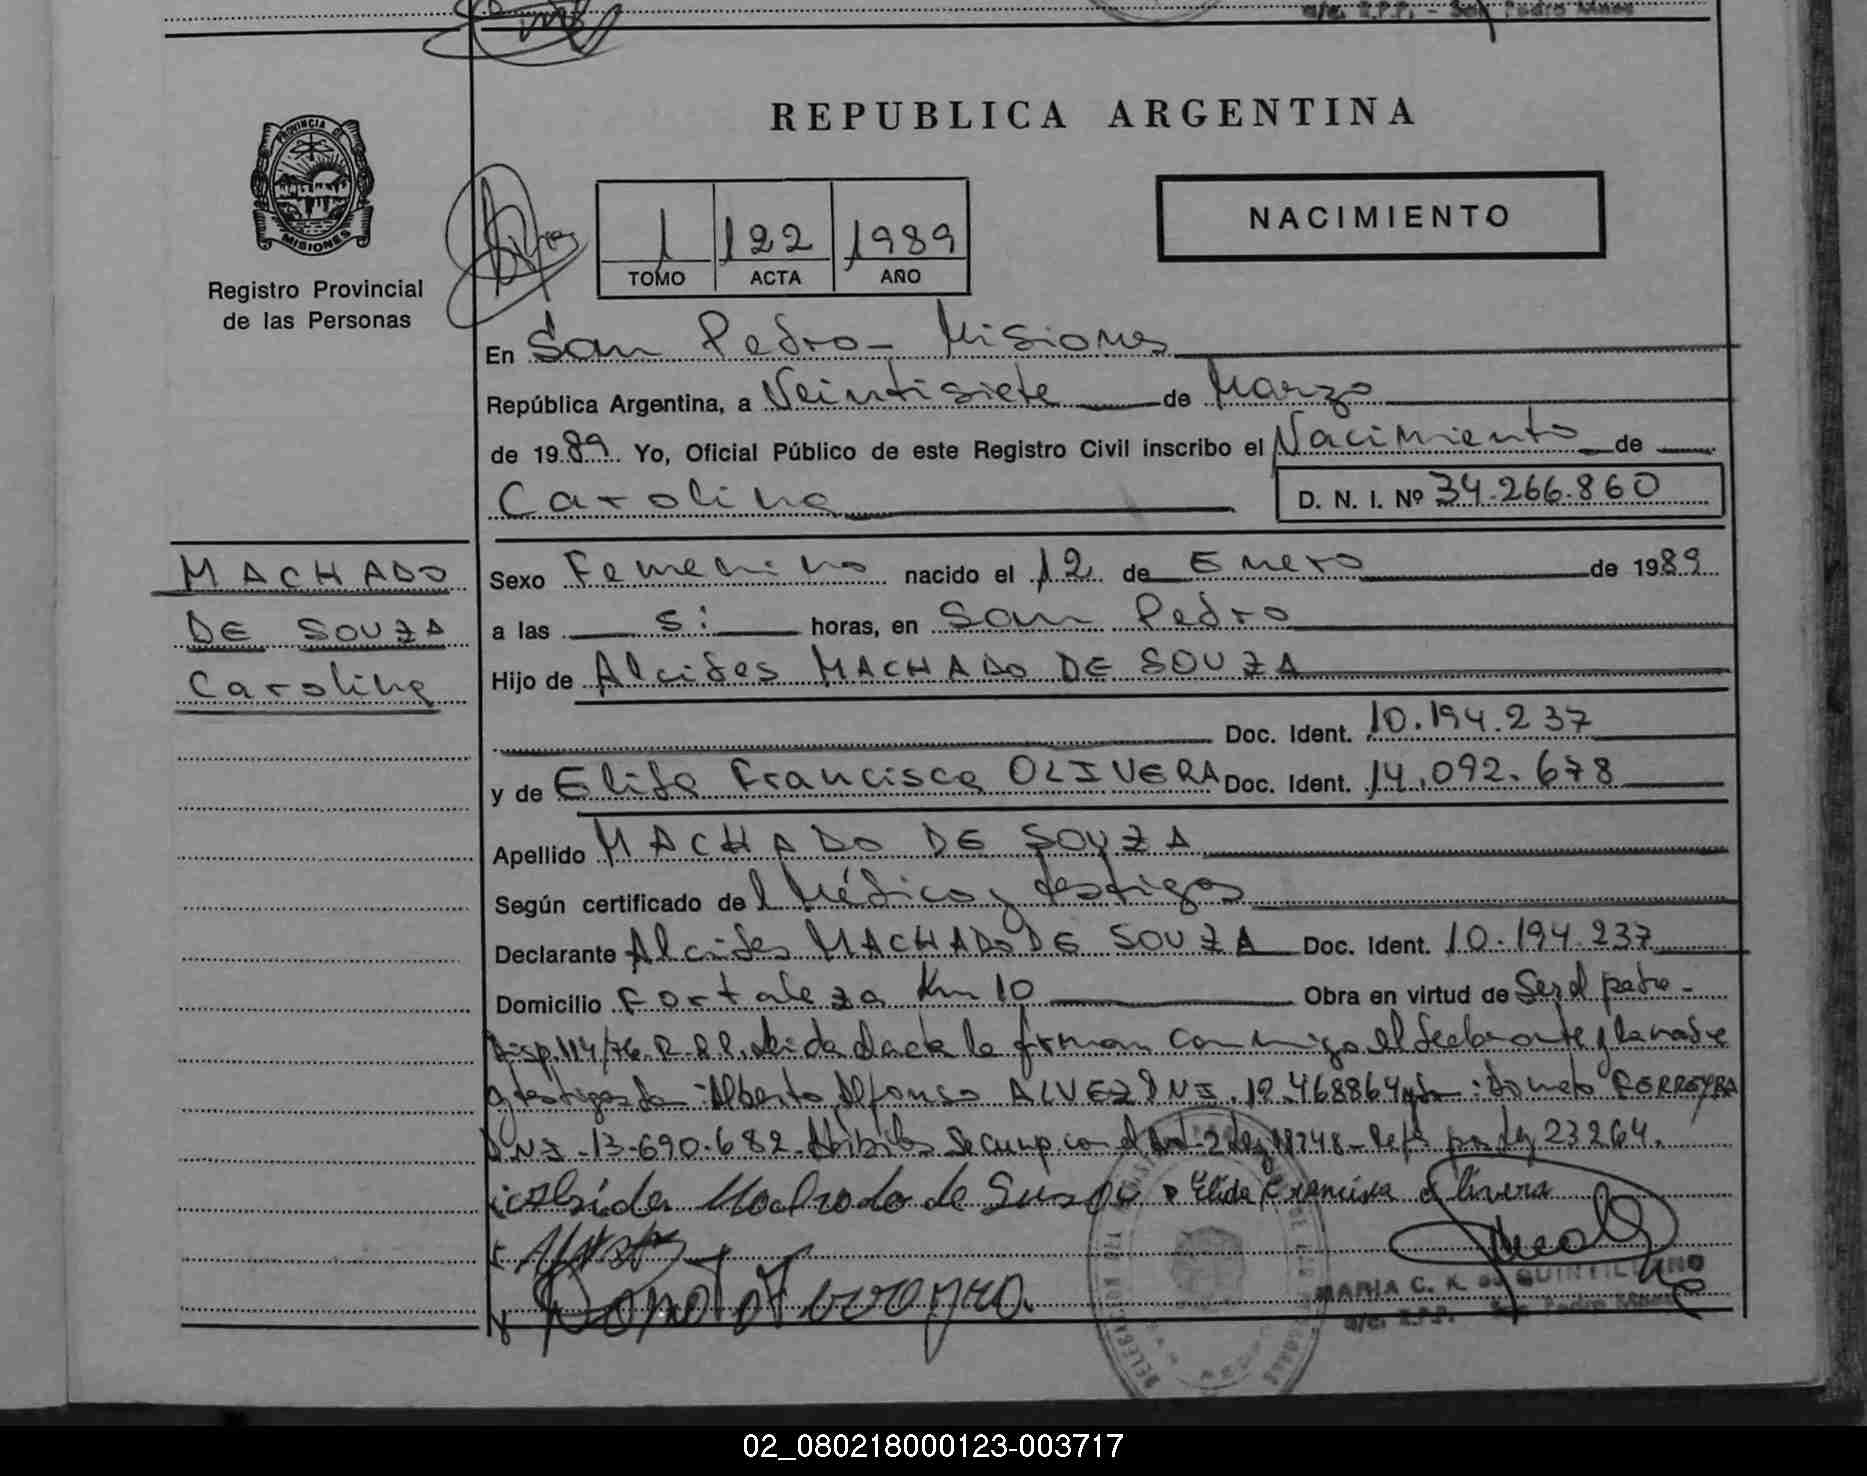 REPUBLICA ARGENTINA
PROVINCIA DE
MISIONES
Registro Provincial
de las Personas
1 122 1989
TOMO ACTA AÑO
NACIMIENTO
En San Pedro - Misiones
República Argentina, a Veintisiete de Marzo
de 1989. Yo, Oficial Público de este Registro Civil inscribo el Nacimiento de
Carolina D. N. I. Nº 34.266.860
MACHADO
DE SOUZA
Carolina
Sexo Femenino nacido el 12 de Enero de 1989
a las si: horas, en San Pedro
Hijo de Alcides MACHADO DE SOUZA
Doc. Ident. 10.194.237
y de Elida Francisca OLIVERA Doc. Ident. 14.092.678
Apellido MACHADO DE SOUZA
Según certificado del Médico y testigos
Declarante Alcides MACHADO DE SOUZA Doc. Ident. 10.194.237
Domicilio Fortaleza Km 10 Obra en virtud de Ser el padre -
Disp. 114/76. R.P.P. Leida el acta la firman conmigo el declarante y la madre
y testigos Alberto Alfonso ALVEZ DNI. 12.468864 FERREYRA
DNI. 13.690.682. Se cump. con el Art. 2 Ley 18248 - por Ley 23264.
Machado de Elida Francisca Olivera
MARIA C. K. de QUINTILIANO
a/c. R.P.P. San Pedro
02_080218000123-003717